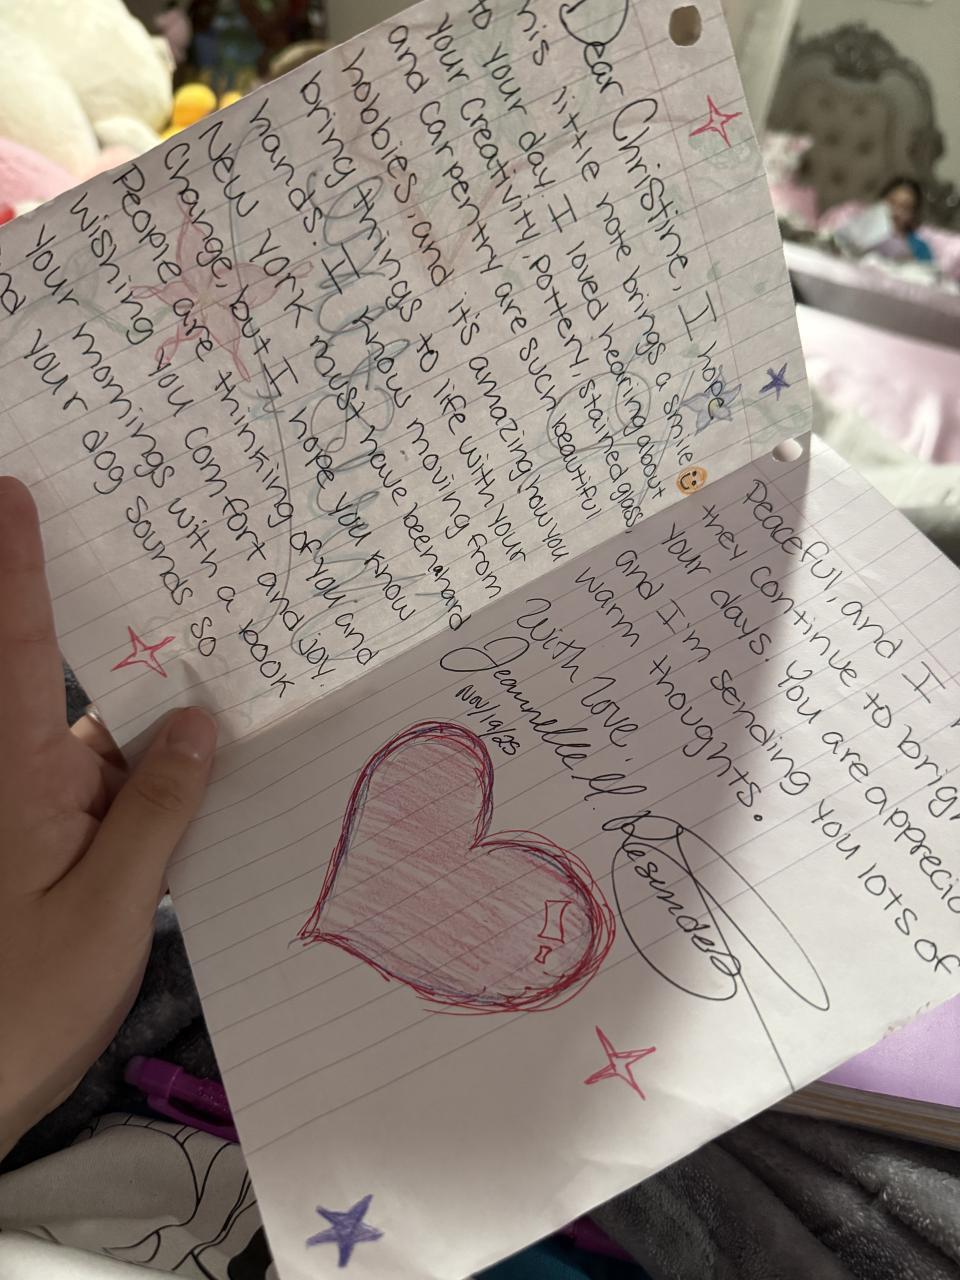 Dear Christine, I hope
this little note brings a smile
to your day. I loved hearing about
your creativity, pottery, stained glass,
and carpentry are such beautiful
hobbies, and it's amazing how you
bring things to life with your
hands. I know moving from
New York must have been a hard
change, but I hope you know
People are thinking of you and
wishing you comfort and joy.
your mornings with a book
and your dog sounds so
peaceful, and I
they continue to brigh
your days. You are apprecia
and I'm sending you lots of
warm thoughts.
With love
Jeannelle
Nov/19/25